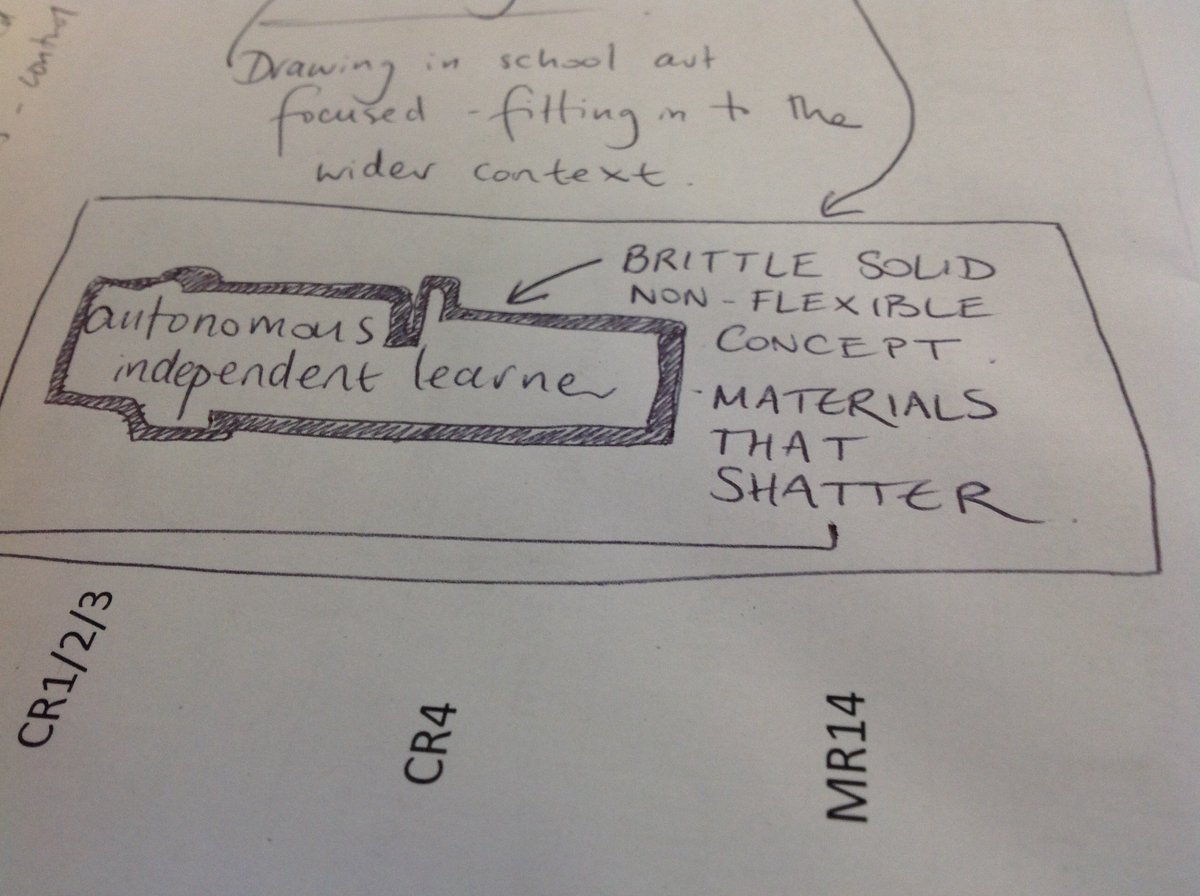 control
Drawing in school art
focused - fitting in to the
wider context.
autonomous
independent learner
BRITTLE SOLID
NON-FLEXIBLE
CONCEPT.
- MATERIALS
THAT
SHATTER.
CR1/2/3
CR4
MR14